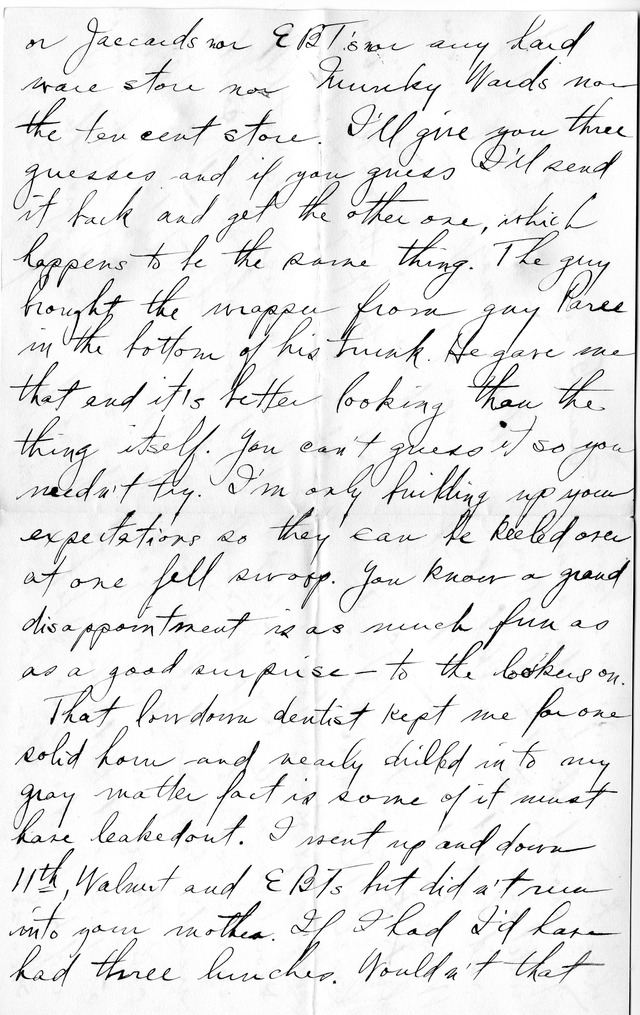 or Jaccards nor EBT's nor any hard
ware store nor Munky Wards nor
the ten cent store. I'll give you three
guesses and if you guess I'll send
it back and get the other one, which
happens to be the same thing. The guy
brought the wrapper from gay Paree
in the bottom of his trunk. He gave me
that and it's better looking than the
thing itself. You can't guess it so you
needn't try. I'm only building up your
expectations so they can be keeled over
at one fell swoop. You know a grand
disappointment is as much fun as
as a good surprise — to the lookers on.
That lowdown dentist kept me for one
solid hour and nearly drilled into my
gray matter fact is some of it must
have leaked out. I went up and down
11th, Walnut and EBTs but didn't run
into your mother. If I had I'd have
had three lunches. Wouldn't that